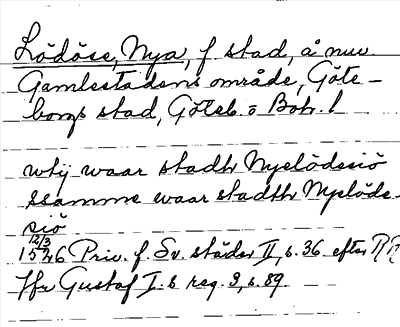 Lödöse, Nya, f stad, å nuv
Gamlestadens område, Göte-
borgs stad, Göteb. o Boh. l
wtij waar stadh Nyelödessiö
ssamme waar stadth Nyelöde-
siö
12/3
1526 Priv. f. Sv. städer II, s. 36 efter RR
Jfr Gustaf I:s reg. 3, s. 89.